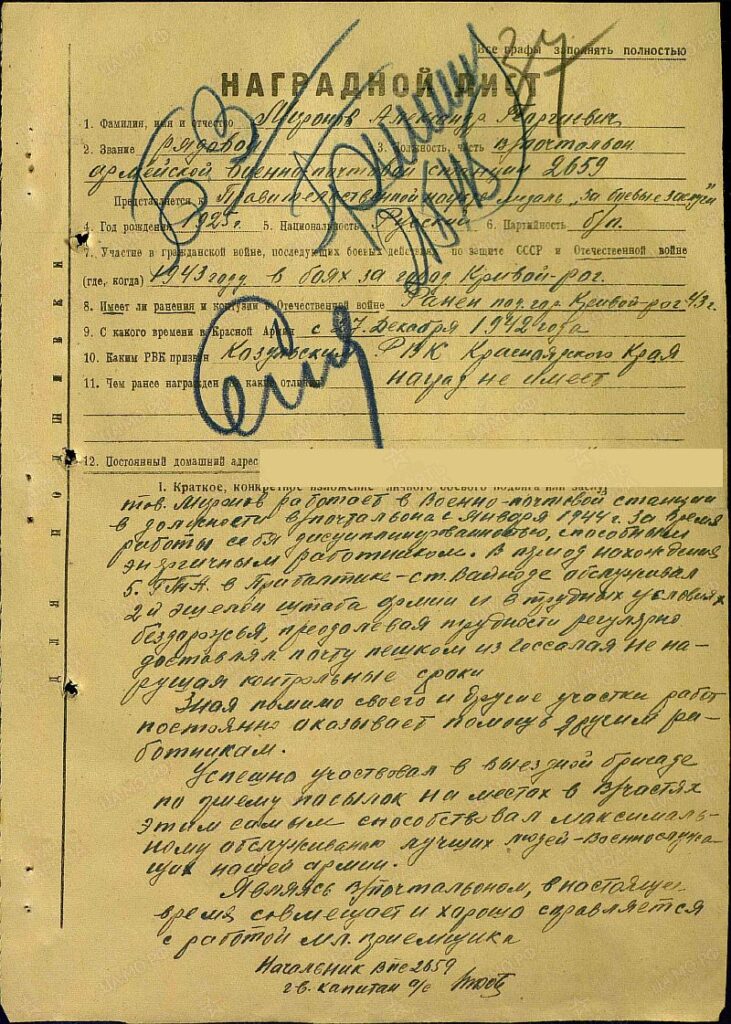 Все графы заполнять полностью
37
НАГРАДНОЙ ЛИСТ
1. Фамилия, имя и отчество Миронов Александр
2. Звание рядовой 3. Должность, часть в/почтальон
армейской военно-почтовой станции 2659
Представляется к Правительственной медаль „за боевые заслуги"
4. Год рождения 1925 г. 5. Национальность Русский 6. Партийность б/п.
7. Участие в гражданской войне, последующих боевых действиях по защите СССР и Отечественной войне
(где, когда) 1943 году в боях за город Кривой-рог.
8. Имеет ли ранения и контузии в Отечественной войне Ранен под гор. Кривой-рог 43 г.
9. С какого времени в Красной Армии с 7. Декабря 1942 года
10. Каким РВК призван Козульским РВК Красноярского Края
11. Чем ранее награжден за какие отличия наград не имеет
12. Постоянный домашний адрес
1. Краткое, конкретное изложение личного боевого подвига или заслуг
тов. Миронов работает в Военно-почтовой станции
в должности в/почтальона с Января 1944 г. За время
работы себя дисциплинированностью, способным
энергичным работником. В период нахождения
5. ГТА. в Прибалтике - ст. Вайноде обслуживал
2й эшелон штаба армии и в трудных условиях
бездорожья, преодолевая трудности регулярно
доставлял почту пешком из не на-
рущая контрольные сроки
Зная помимо своего и другие участки работ
постоянно оказывает помощь другим ра-
ботникам.
Успешно участвовал в выездной бригаде
по приему посылок на местах в в/частях
этим самым способствовал максималь-
ному обслуживанию лучших людей-военнослужа-
щих нашей армии.
Являясь в/почтальоном, в настоящее
время совмещает и хорошо справляется
с работой мл. приемщика
Начальник ВПС 2659
гв. капитан а/с
ДЛЯ ПОДШИВКИ